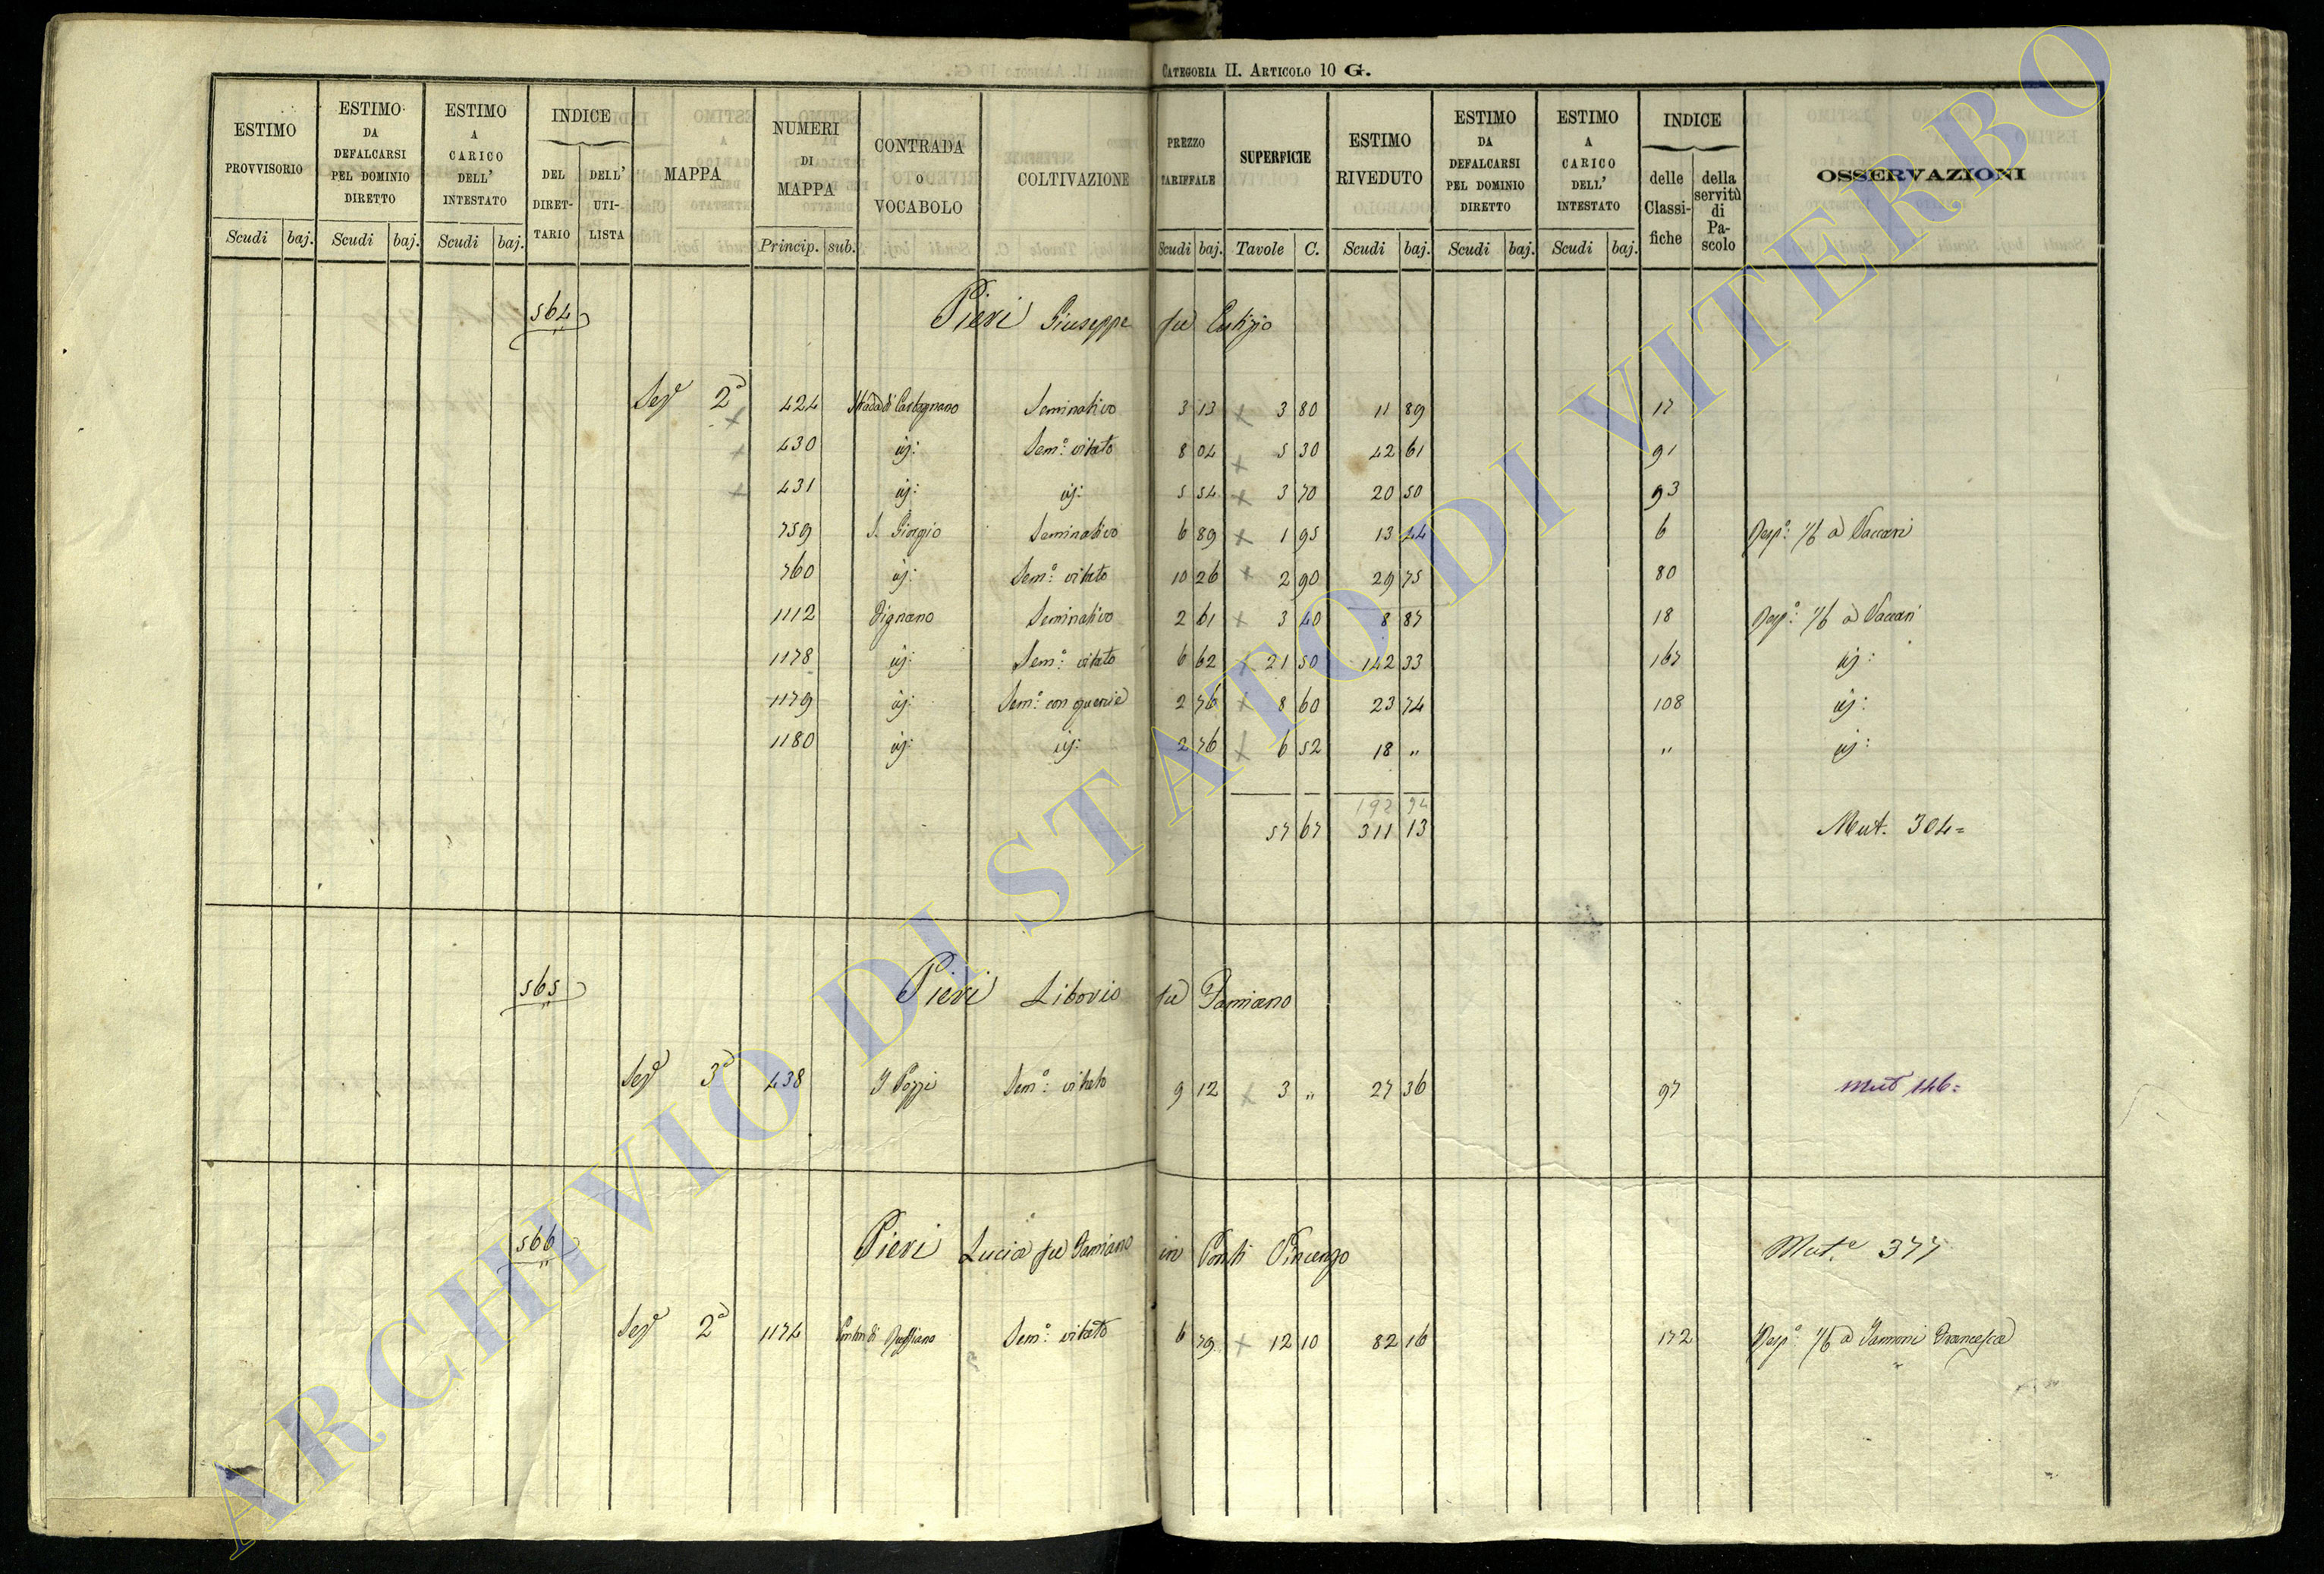 CATEGORIA II. ARTICOLO 10 G.
ESTIMO PROVVISORIO
Scudi baj.
ESTIMO DA DEFALCARSI PEL DOMINIO DIRETTO
Scudi baj.
ESTIMO A CARICO DELL' INTESTATO
Scudi baj.
INDICE
DEL DIRET-TARIO
DELL' UTI-LISTA
MAPPA
NUMERI DI MAPPA
Princip. sub.
CONTRADA O VOCABOLO
COLTIVAZIONE
PREZZO TARIFFALE
Scudi baj.
SUPERFICIE
Tavole C.
ESTIMO RIVEDUTO
Scudi baj.
ESTIMO DA DEFALCARSI PEL DOMINIO DIRETTO
Scudi baj.
ESTIMO A CARICO DELL' INTESTATO
Scudi baj.
INDICE
delle Classi-fiche
della servitù di Pa-scolo
OSSERVAZIONI
564 Pieri Giuseppe fu Eutizio
2a 424 Seminativo 3 13 3 80 11 89 17
430 Semo: vitato 8 04 5 30 42 61 91
431 5 54 3 70 20 50 93
759 S. Giorgio Seminativo 6 89 1 95 13 44 6 1/6 a Vaccari
760 Semo: vitato 10 26 2 90 29 75 80
1112 Vignano Seminativo 2 61 3 40 8 87 18 1/6 a Vaccari
1178 Semo: vitato 6 62 21 50 142 33 167
1179 Semo: con quercie 2 76 8 60 23 74 108
1180 2 76 6 52 18 " "
192 94
57 67 311 13 Mut. 304=
565 Pieri Liborio fu Damiano
3a 438 I Pozzi Semo: vitato 9 12 3 " 27 36 97 Mut 146=
566 Pieri Lucia fu Damiano in Ponti Vincenzo Muta. 377
2a 1174 Semo: vitato 6 79 12 10 82 16 172 1/6 a Francesca
ARCHIVIO DI STATO DI VITERBO